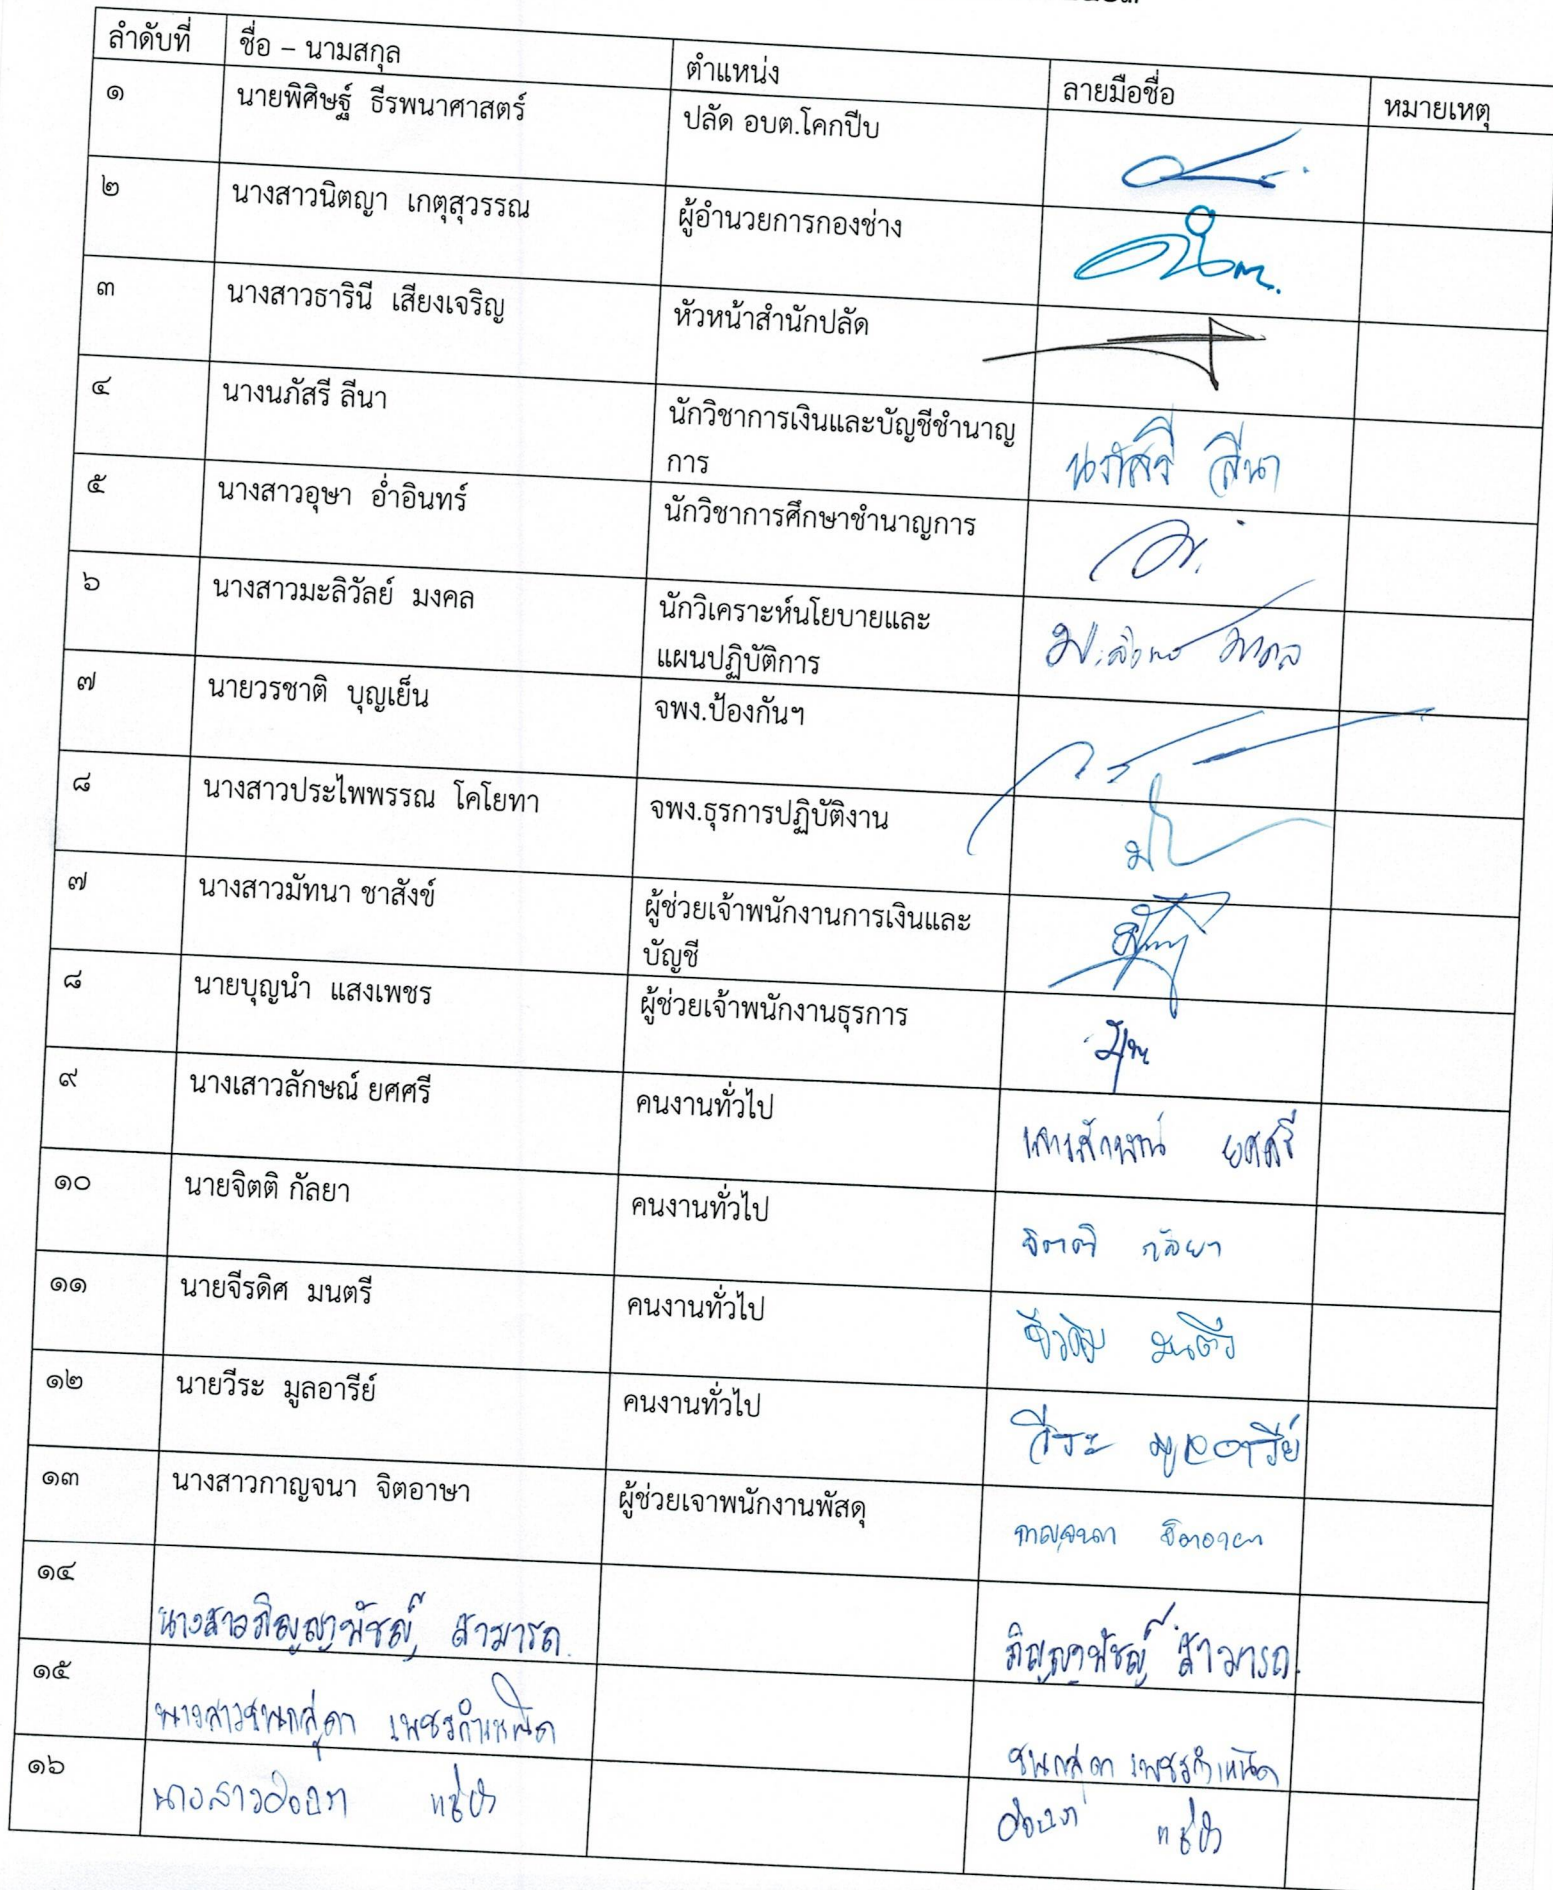 ลำดับที่ ชื่อ – นามสกุล ตำแหน่ง ลายมือชื่อ หมายเหตุ
๑ นายพิศิษฐ์ ธีรพนาศาสตร์ ปลัด อบต.โคกปีบ
๒ นางสาวนิตญา เกตุสุวรรณ ผู้อำนวยการกองช่าง
๓ นางสาวธารินี เสียงเจริญ หัวหน้าสำนักปลัด
๔ นางนภัสรี ลีนา นักวิชาการเงินและบัญชีชำนาญ
การ
นภัสรี ลีนา
๕ นางสาวอุษา อ่ำอินทร์ นักวิชาการศึกษาชำนาญการ
๖ นางสาวมะลิวัลย์ มงคล นักวิเคราะห์นโยบายและ
แผนปฏิบัติการ
มะลิวัลย์ มงคล
๗ นายวรชาติ บุญเย็น จพง.ป้องกันฯ
๘ นางสาวประไพพรรณ โคโยทา จพง.ธุรการปฏิบัติงาน
๗ นางสาวมัทนา ชาสังข์ ผู้ช่วยเจ้าพนักงานการเงินและ
บัญชี
๘ นายบุญนำ แสงเพชร ผู้ช่วยเจ้าพนักงานธุรการ
๙ นางเสาวลักษณ์ ยศศรี คนงานทั่วไป เสาวลักษณ์ ยศศรี
๑๐ นายจิตติ กัลยา คนงานทั่วไป จิตติ กัลยา
๑๑ นายจีรดิศ มนตรี คนงานทั่วไป จีรดิศ มนตรี
๑๒ นายวีระ มูลอารีย์ คนงานทั่วไป วีระ มูลอารีย์
๑๓ นางสาวกาญจนา จิตอาษา ผู้ช่วยเจาพนักงานพัสดุ กาญจนา จิตอาษา
๑๔ นางสาวภิญญาพัชญ์ สามารถ ภิญญาพัชญ์ สามารถ
๑๕ นางสาวชนกสุดา เพชรกำเหนิด ชนกสุดา เพชรกำเหนิด
๑๖ นางสาว